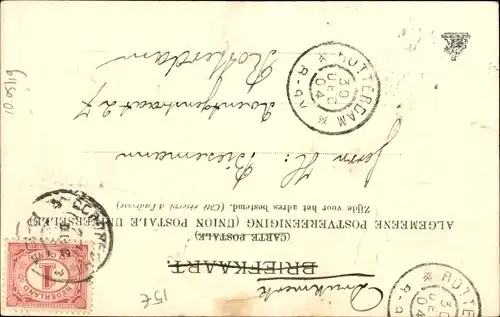 BRIEFKAART.
Drukwerk
(CARTE POSTALE)
ALGEMEENE POSTVEREENIGING (UNION POSTALE UNIVERSELLE)
Zijde voor het adres bestemd. (Côté réservé à l'adresse)
Herrn H. Biesemann
27
Rotterdam
ROTTERDAM
30 DEC 04
8-9 V
ROTTERDAM
30 DEC 04
8-9 V
NEDERLAND
1 CENT
15€